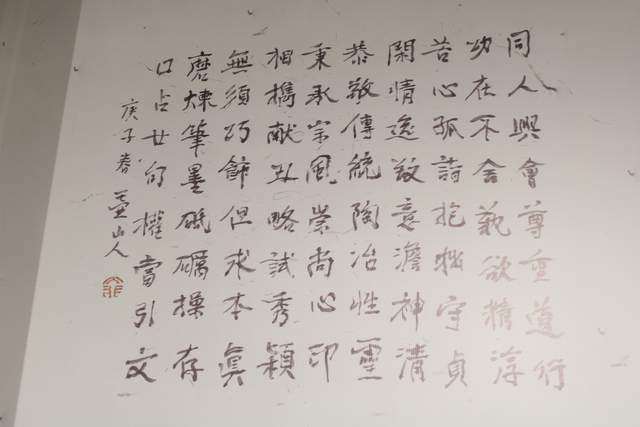 同人興會尊重遵行
功在不舍藝欲精淳
苦心孤詩抱拙守貞
閑情逸致意澹神清
恭敬傳統陶冶性靈
秉承宗風崇尚心印
相攜献丑略試秀穎
無須巧飾但求本真
磨煉筆墨砥礪操存
口占廿句權當引文
庚子春 壺山人